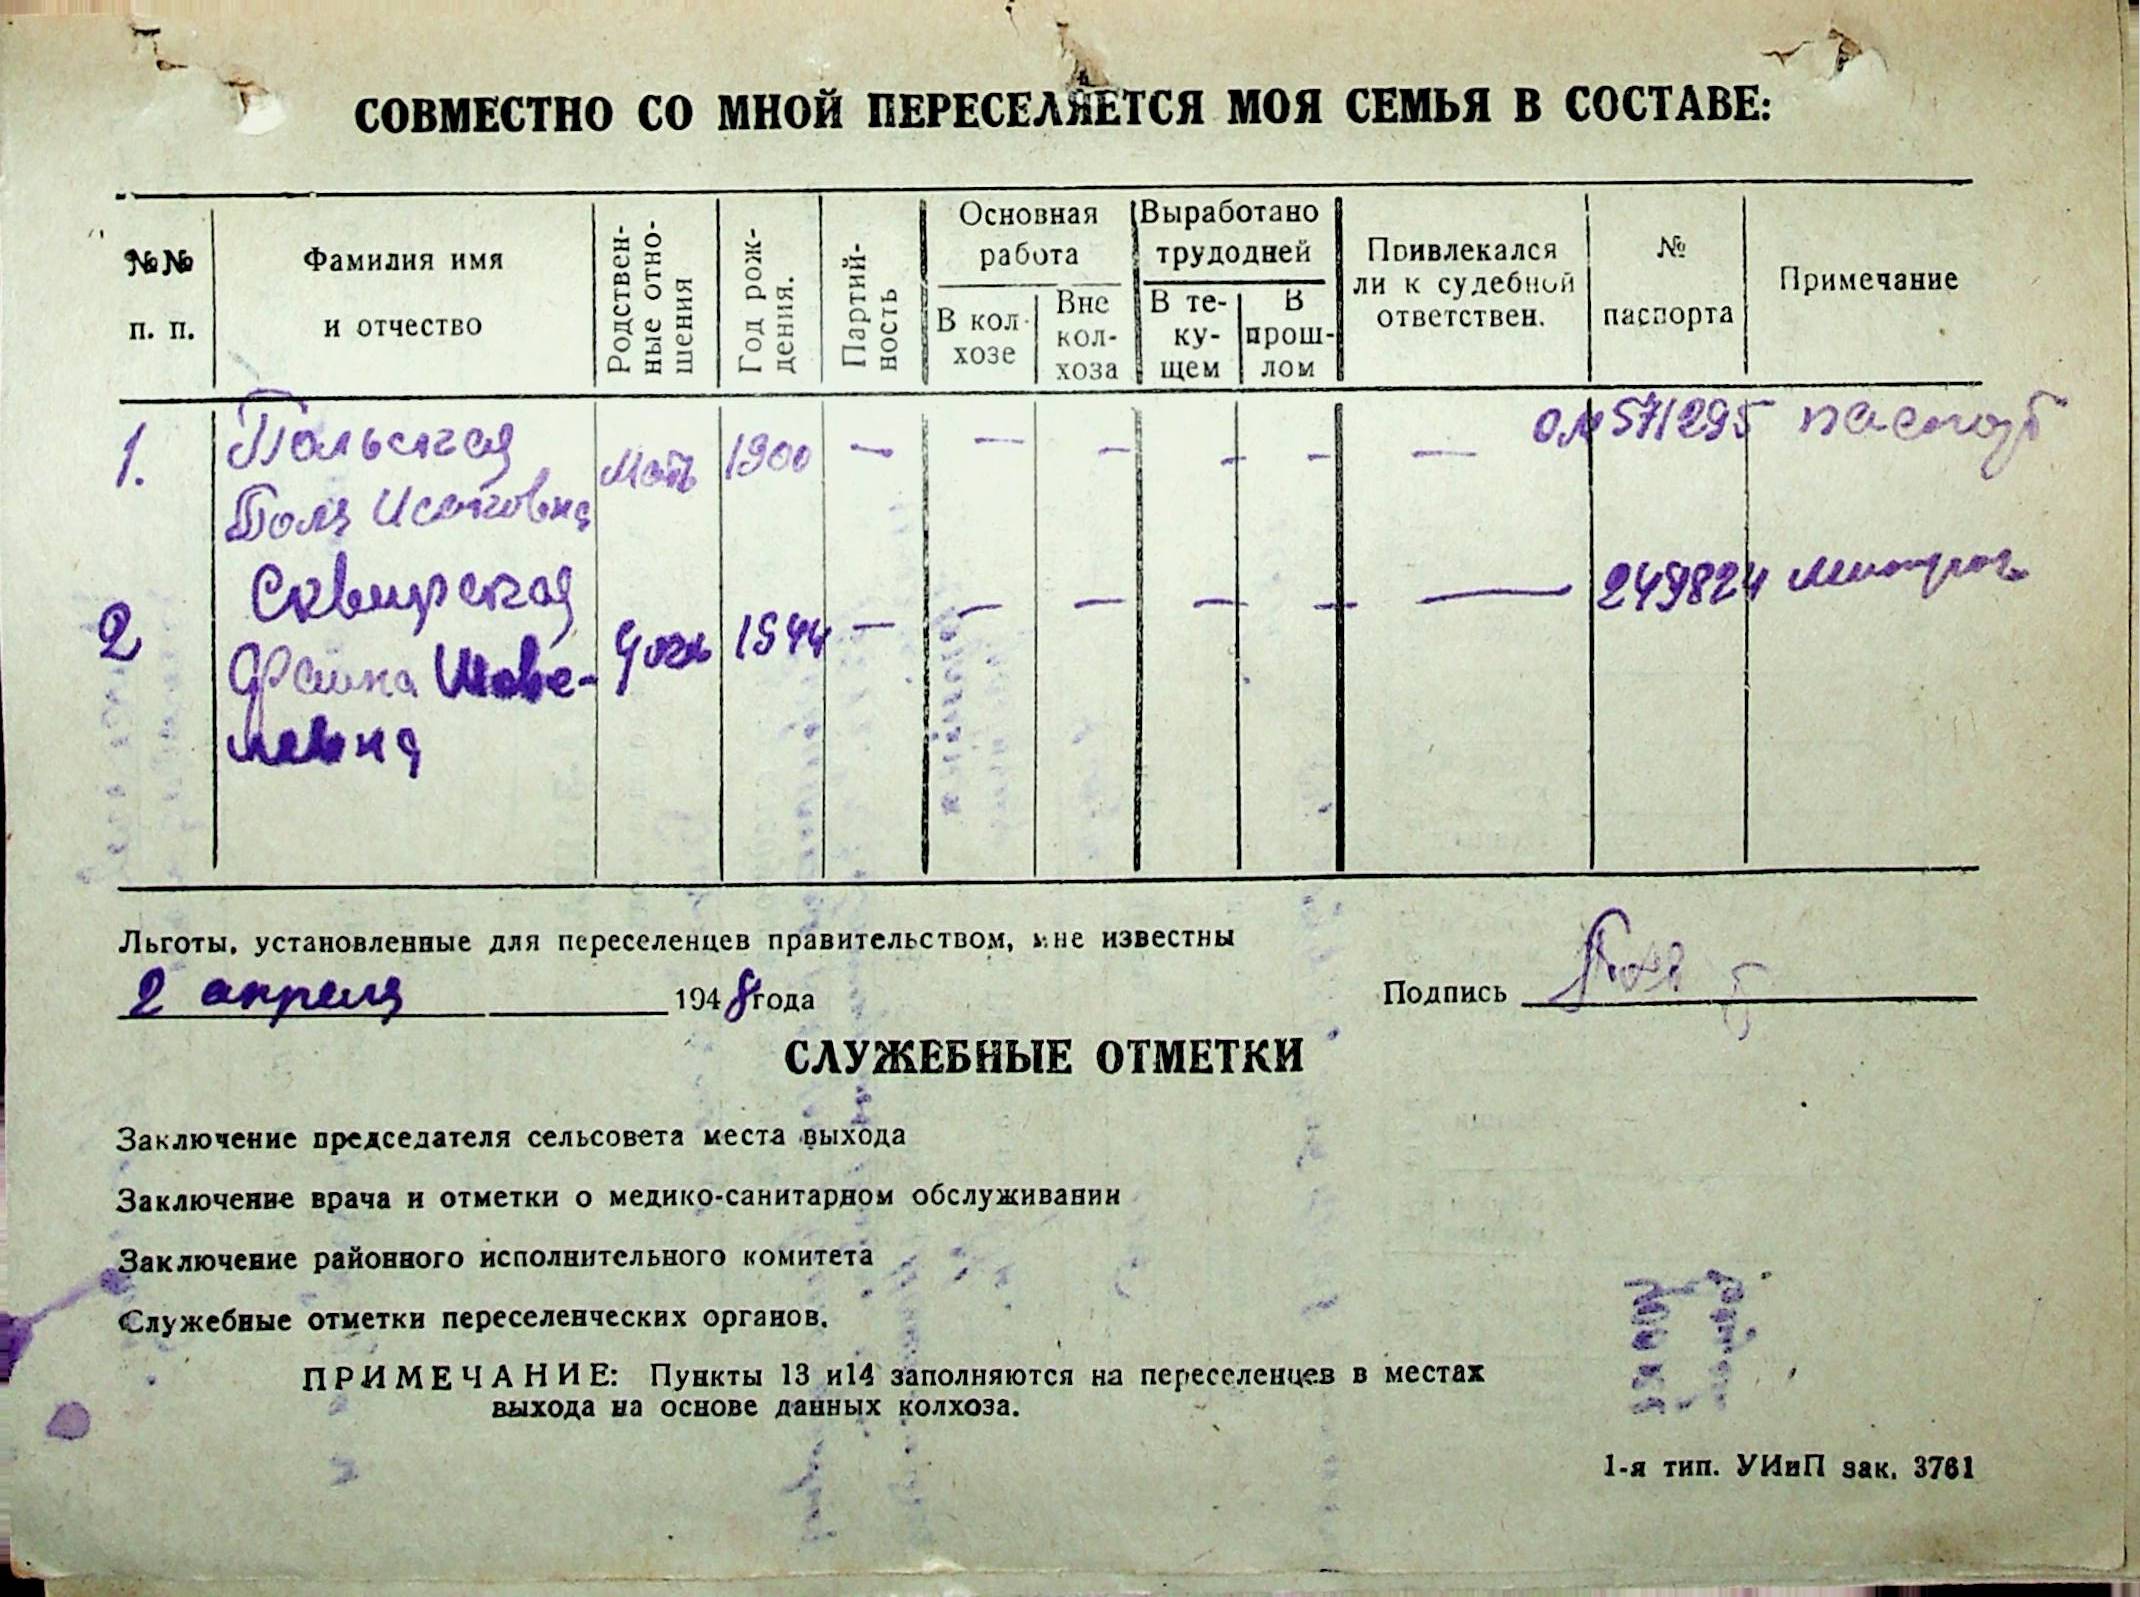 СОВМЕСТНО СО МНОЙ ПЕРЕСЕЛЯЕТСЯ МОЯ СЕМЬЯ В СОСТАВЕ:
№№ п. п.
Фамилия имя и отчество
Родствен-ные отно-шения
Год рож-дения.
Партий-ность
Основная работа
В кол-хозе
Вне кол-хоза
Выработано трудодней
В те-ку-щем
В прош-лом
Привлекался ли к судебной ответствен.
№ паспорта
Примечание
1. Польская Поля Исаковна мать 1900 — — — — — — 571295 паспорт
2 Сквирская Фаина Шове-левна дочь 1944 — — — — — — 249824
Льготы, установленные для переселенцев правительством, мне известны
2 апреля 1948 года
Подпись
СЛУЖЕБНЫЕ ОТМЕТКИ
Заключение председателя сельсовета места выхода
Заключение врача и отметки о медико-санитарном обслуживании
Заключение районного исполнительного комитета
Служебные отметки переселенческих органов.
ПРИМЕЧАНИЕ: Пункты 13 и14 заполняются на переселенцев в местах
выхода на основе данных колхоза.
1-я тип. УИиП зак. 3761